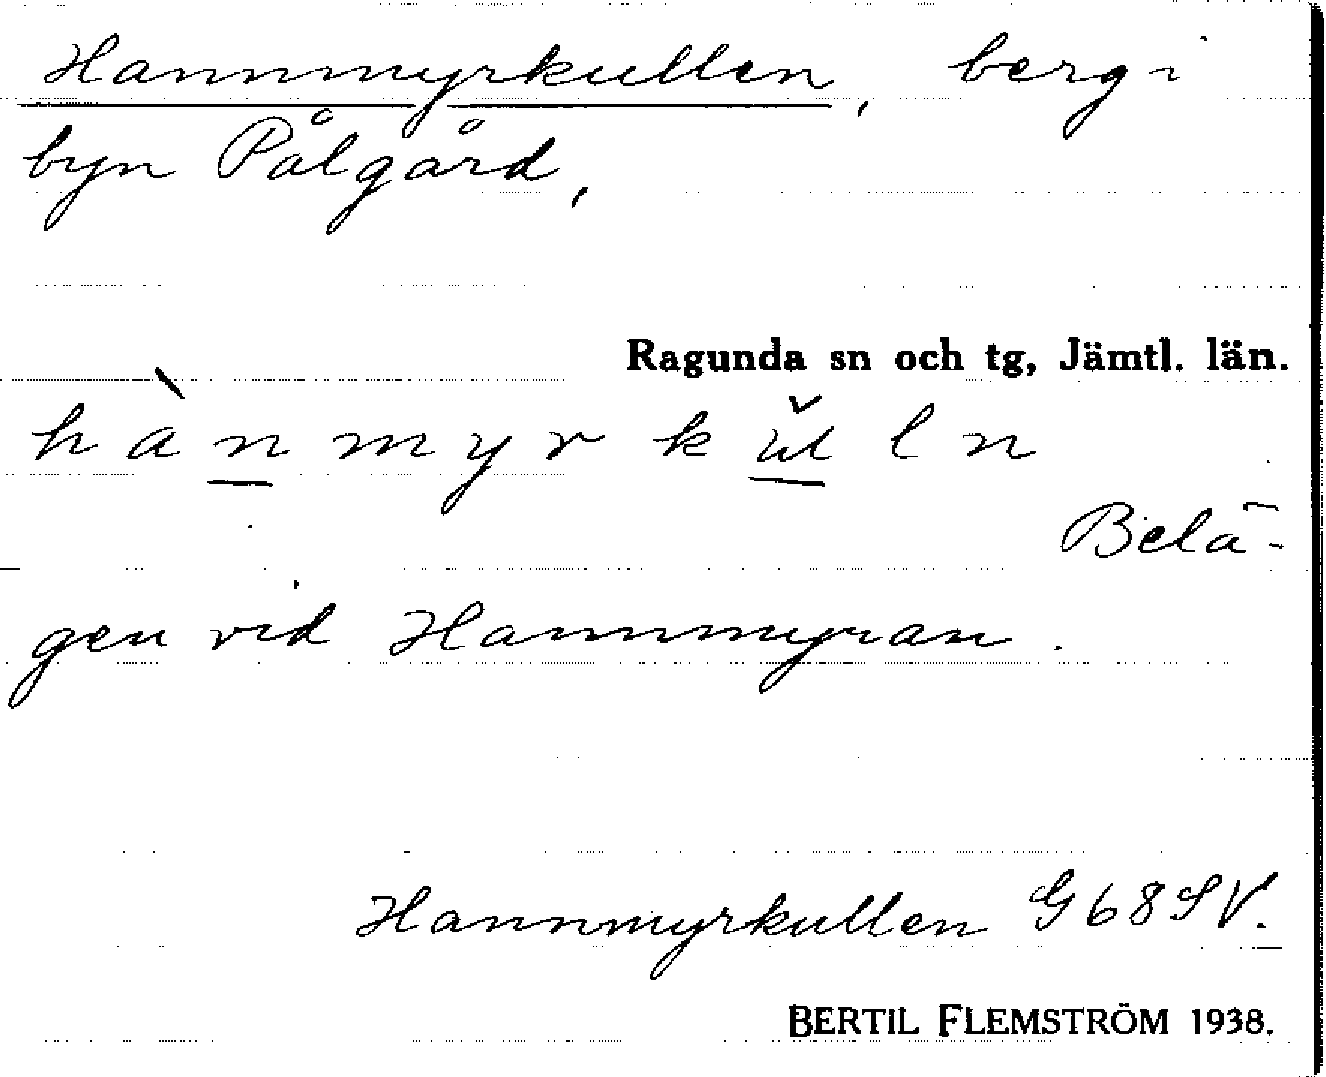 Hannmyrkullen, berg i
byn Pålgård,
Ragunda sn och tg, Jämtl. län.
hànmyrkŭlln
Belä-
gen vid Hannmyran.
Hannmyrkullen G68SV.
BERTIL FLEMSTRÖM 1938.